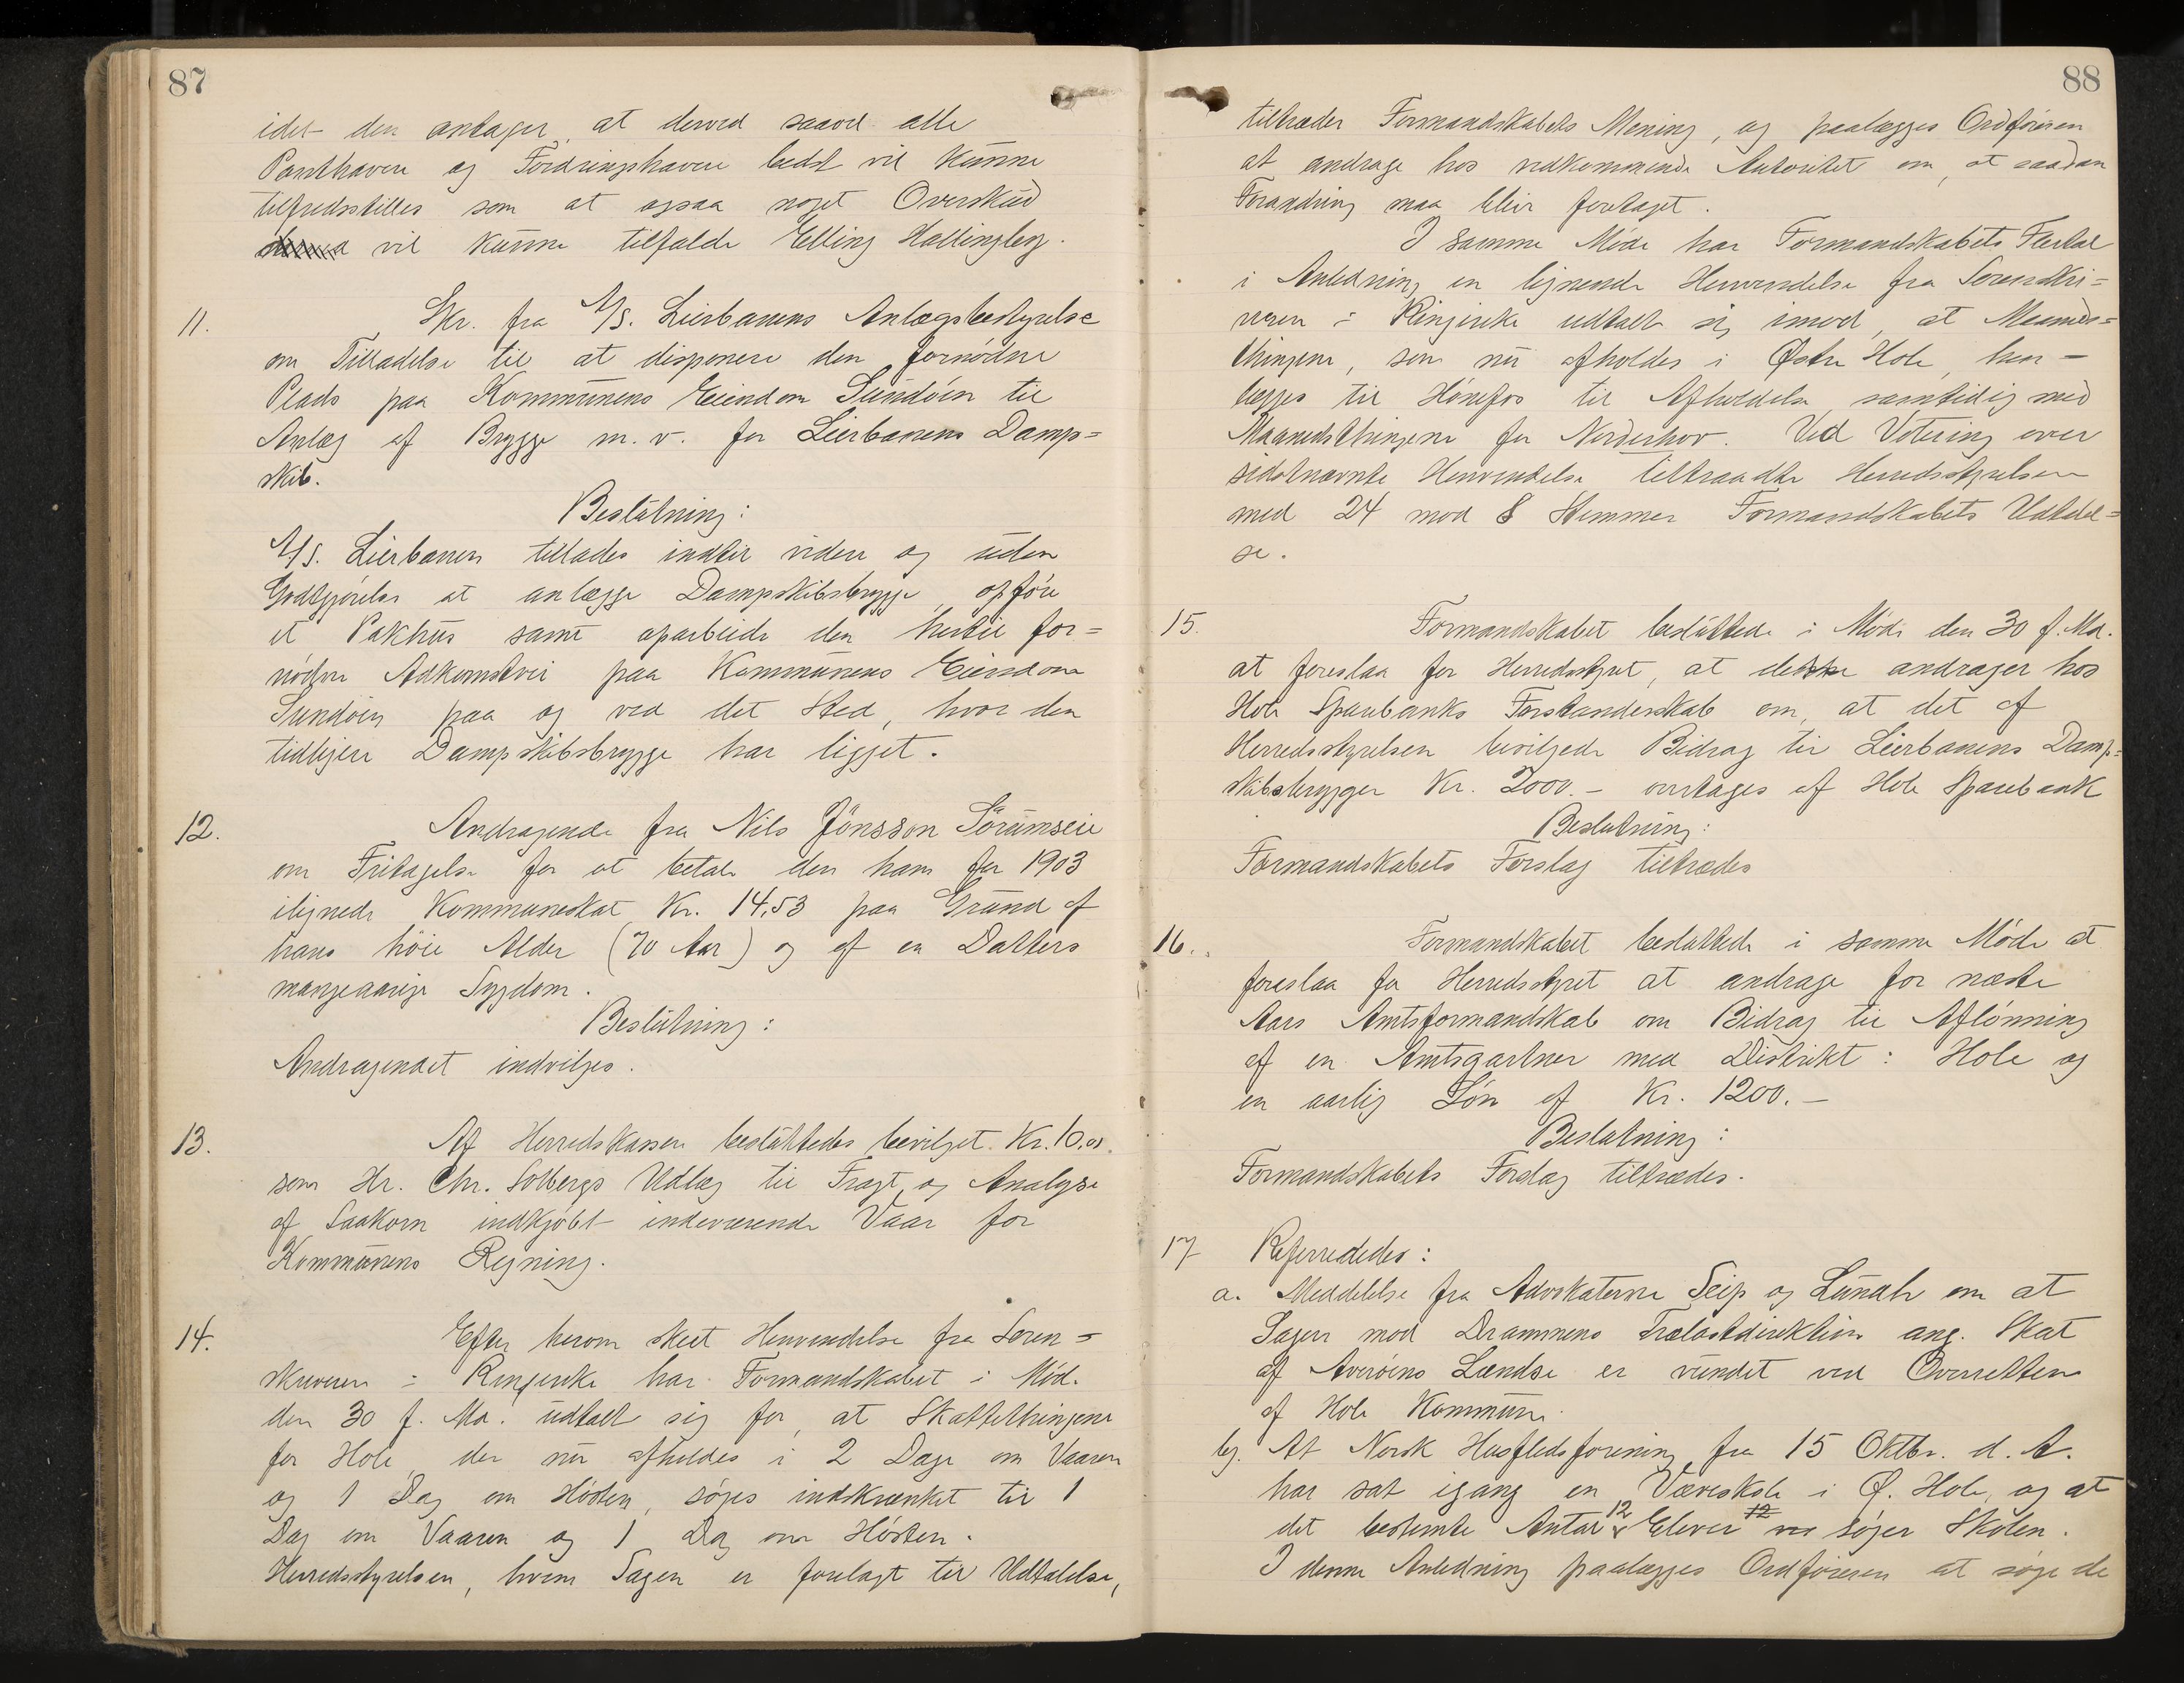 87
idet den antager, at derved saavel alle
Panthavere og Fordringshavere bedst vil kunne
tilfredsstilles som at ogsaa noget Overskud
vil kunne tilfalde Elling Hallingby.
11. Skr. fra A/S. Lierbanens Anlægsbestyrelse
om Tilladelse til at disponere den fornödne
Plads paa Kommunens Eiendom Sundöen til
Anlæg af Brygge m. v. for Lierbanens Damp=
skib.
Beslutning:
A/S. Lierbanen tillades indtil videre og uden
Godtgjörelse at anlægge Dampskibsbrygge, opföre
et Pakhus samt oparbeide den hertil for=
nödne Adkomstvei paa Kommunens Eiendom
Sundöen paa og ved det Sted, hvor den
tidligere Dampskibsbrygge har ligget.
12. Andragende fra Nils Jönsson Sörumseie
om Fritagelse for at betale den ham for 1903
ilignede Kommuneskat Kr. 14,53 paa Grund af
hans höie Alder (70 Aar) og af en Datters
mangeaarige Sygdom.
Beslutning:
Andragendet indvilges.
13. Af Herredskassen besluttedes bevilget Kr.
som Hr. Chr. Solbergs Udlæg til Fragt og Analyse
af Saakorn indkjöbt indeværende Vaar for
Kommunens Regning.
14. Efter herom skeet Henvendelse fra Soren=
skriveren i Ringerike har Formandskabet i Möde
den 30 f. Md. udtalt sig for, at Skattethingene
for Hole, der nu afholdes i 2 Dage om Vaaren
og 1 Dag om Hösten, söges indskrænket til 1
Dag om Vaaren og 1 Dag om Hösten.
Herredsstyrelsen, hvem Sagen er forelagt til Udtalelse,
88
tiltræder Formandskabets Mening, og paalægges Ordföreren
at andrage hos vedkommende Autoritet om, at saadan
Forandring maa blive foretaget.
I samme Möde har Formandskabets Flertal
i Anledning en lignende Henvendelse fra Sorenskri=
veren i Ringerike udtalt sig imod, at Maaneds=
thingene, som nu afholdes i Østre Hole, hen=
lægges til Hönefos til Afholdelse samtidig med
Maanedsthingene for Norderhov. Ved Votering over
sidstnævnte Henvendelse tiltraadte Herredsstyrelsen
med 24 mod 8 Stemmer Formandskabets Udtalel=
se.
15. Formandskabet besluttede i Möde den 30 f. Md.
at foreslaa for Herredsstyret, at dette andrager hos
Hole Sparebanks Forstanderskab om, at det af
Herredsstyrelsen bevilgede Bidrag til Lierbanens Damp=
skibsbrygger Kr. 2000.- overtages af Hole Sparebank
Beslutning:
Formandskabets Forslag tiltrædes
16. Formandskabet besluttede i samme Möde at
foreslaa for Herredsstyret at andrage for næste
Aars Amtsformandskab om Bidrag til Aflönning
af en Amtsgartner med Distrikt: Hole og
en aarlig Lön af Kr. 1200.-
Beslutning:
Formandskabets Forslag tiltrædes.
17 Refereredes:
a. Meddelelse fra Advokaterne Seip og Lundh om at
Sagen mod Drammens Trælastdirektion ang. Skat
af Averöens Lændse er vundet ved Overretten
af Hole Kommune.
b. At Norsk Husflidsforening fra 15 Oktbr. d. A.
har sat igang en Væveskole i Ø. Hole, og at
det bestemte Antal 12 Elever 12 söger Skolen.
I denne Anledning paalægges Ordföreren at söge de